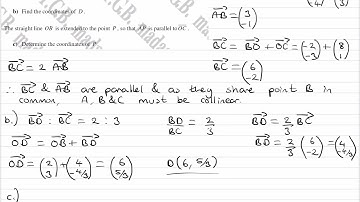 b) Find the coordinates of D.
The straight line OB is extended to the point P, so that AP is parallel to OC.
c) Determine the coordinates of P.
AB = (3 -1)
BC = BO + OC = (-2 -3) + (8 1)
BC = 2 AB
BC = (6 -2)
∴ BC & AB are parallel & as they share point B in
common, A, B & C must be collinear.
b.) BD : BC = 2 : 3
BD/BC = 2/3
BD = 2/3 BC
OD = OB + BD
BD = 2/3 (6 -2) = (4 -4/3)
OD = (2 3) + (4 -4/3) = (6 5/3)
D(6, 5/3)
c.)